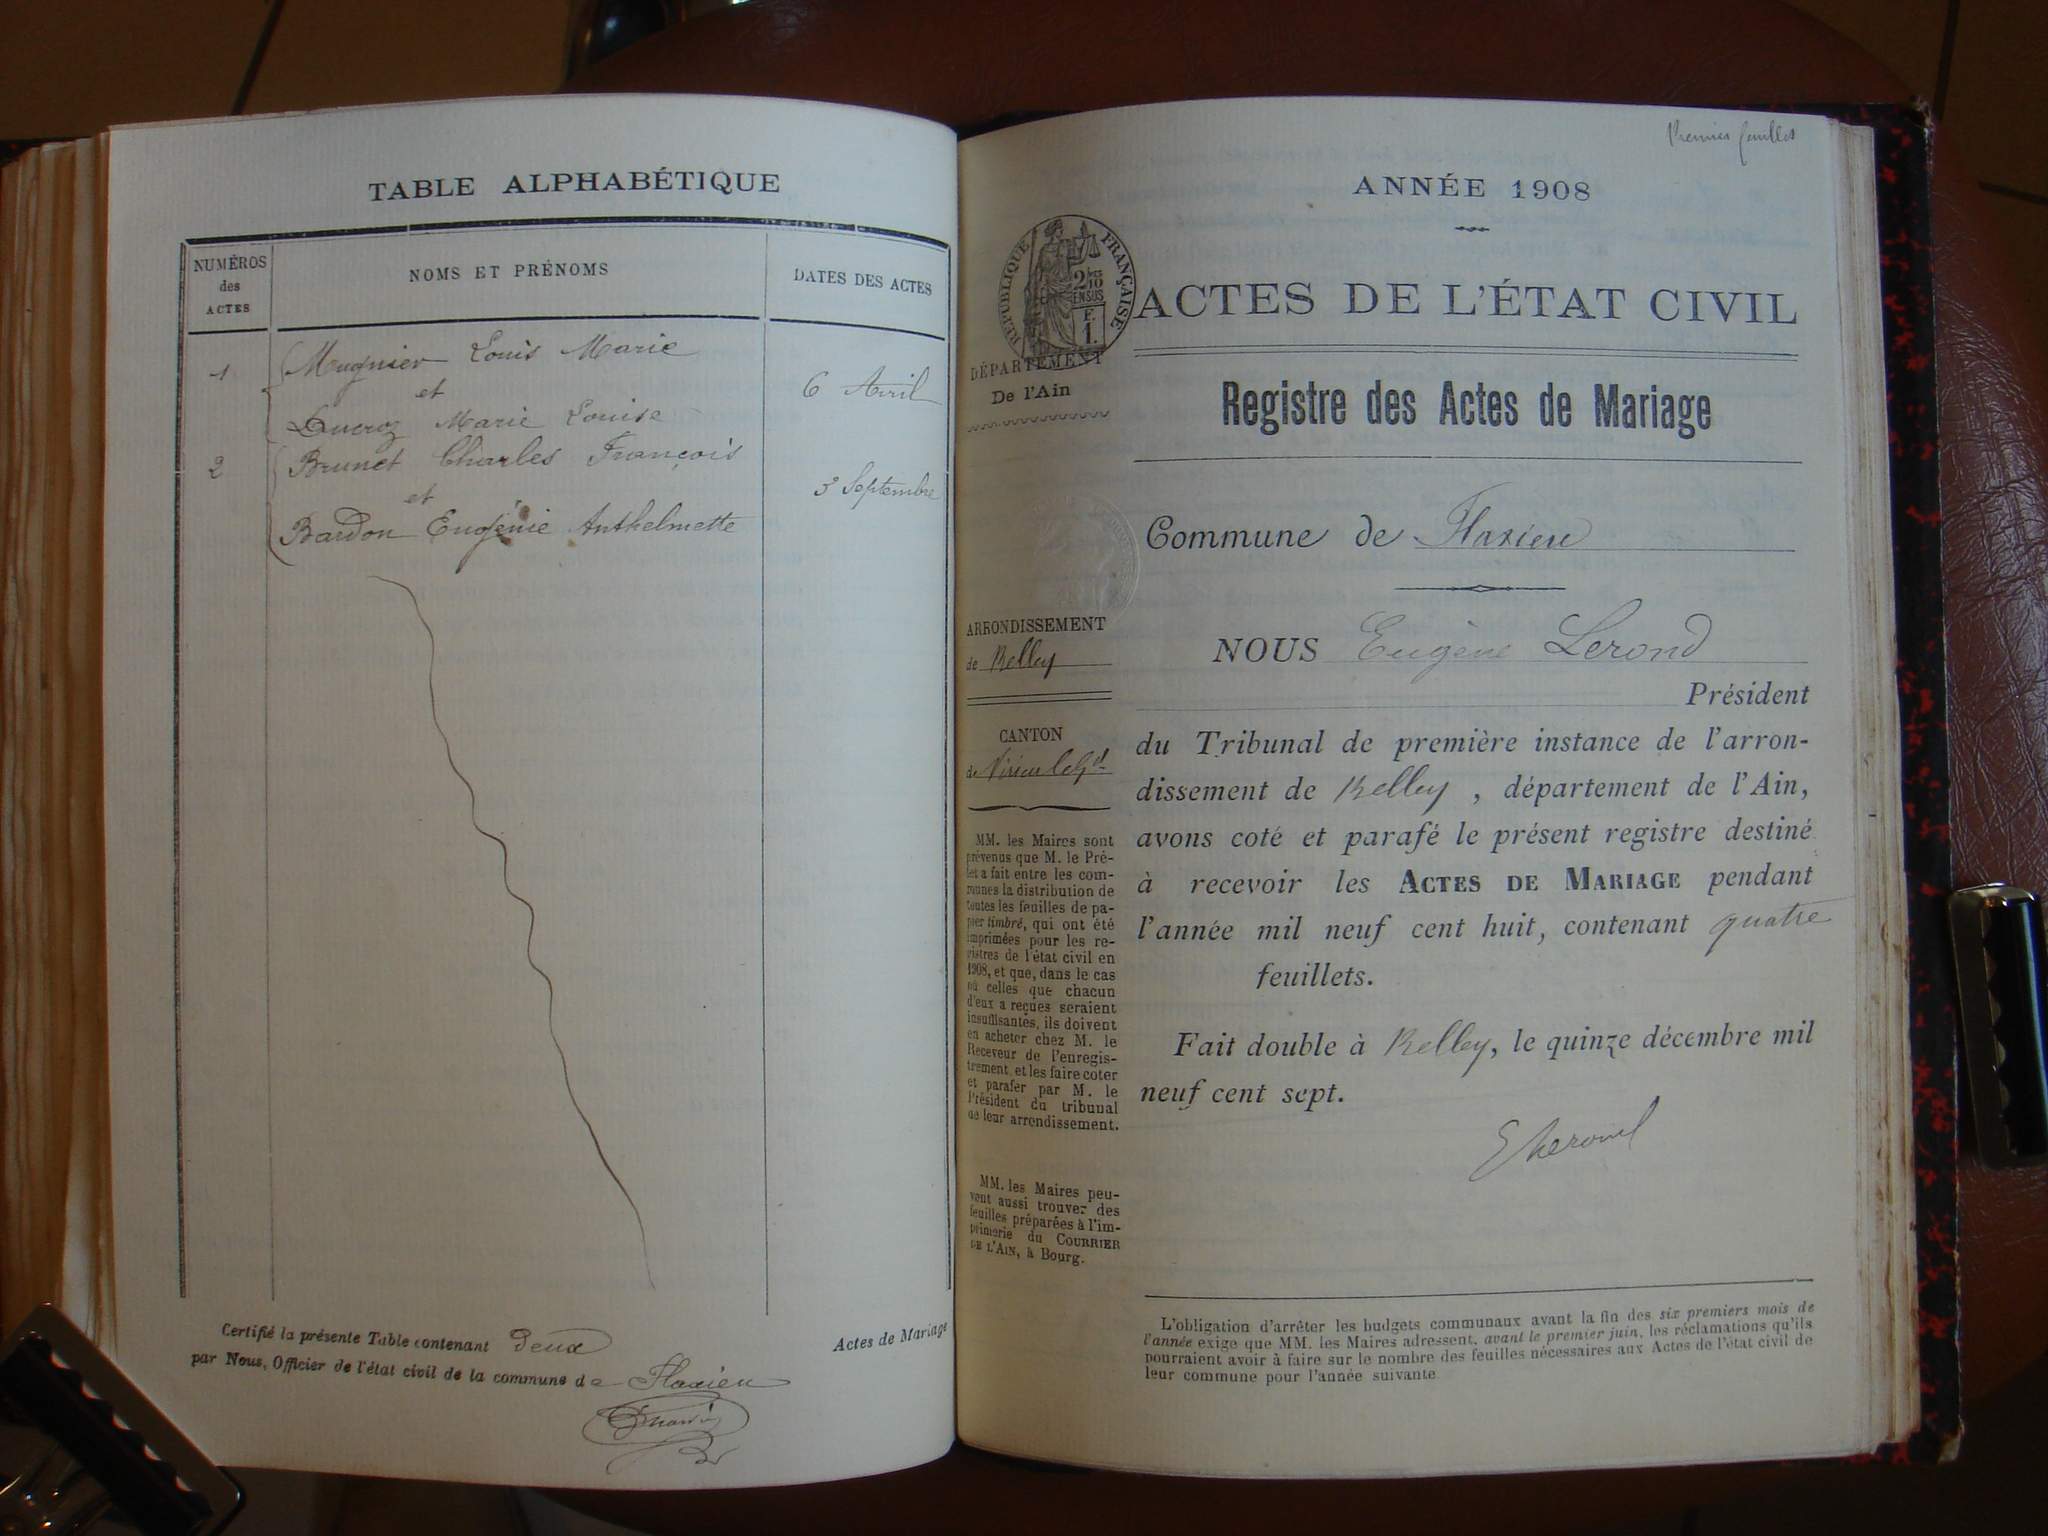 TABLE ALPHABÉTIQUE
NUMÉROS
des
ACTES
NOMS ET PRÉNOMS
DATES DES ACTES
1
Mugnier Louis Marie
et
6 Avril
Ducroz Marie Louise
2
Brunet Charles François
et
3 Septembre
Bardon Eugénie Anthelmette
Certifié la présente Table contenant deux
par Nous, Officier de l'état civil de la commune de Flaxieu
Actes de Mariage
Premier feuillet
ANNÉE 1908
RÉPUBLIQUE FRANÇAISE
2/10
EN SUS
F.
1.
ACTES DE L'ÉTAT CIVIL
DÉPARTEMENT
De l'Ain
Registre des Actes de Mariage
Commune de Flaxieu
ARRONDISSEMENT
de Belley
CANTON
de Virieu le Gd
MM. les Maires sont
prévenus que M. le Pré-
fet a fait entre les com-
munes la distribution de
toutes les feuilles de pa-
pier timbré, qui ont été
imprimées pour les re-
gistres de l'état civil en
1908, et que, dans le cas
où celles que chacun
d'eux a reçues seraient
insuffisantes, ils doivent
en acheter chez M. le
Receveur de l'enregis-
trement, et les faire coter
et parafer par M. le
Président du tribunal
de leur arrondissement.
MM. les Maires peu-
vent aussi trouver des
feuilles préparées à l'im-
primerie du COURRIER
DE L'AIN, à Bourg.
NOUS Eugène Lerond
Président
du Tribunal de première instance de l'arron-
dissement de Belley, département de l'Ain,
avons coté et parafé le présent registre destiné
à recevoir les ACTES DE MARIAGE pendant
l'année mil neuf cent huit, contenant quatre
feuillets.
Fait double à Belley, le quinze décembre mil
neuf cent sept.
ELerond
L'obligation d'arrêter les budgets communaux avant la fin des six premiers mois de
l'année exige que MM. les Maires adressent, avant le premier juin, les réclamations qu'ils
pourraient avoir à faire sur le nombre des feuilles nécessaires aux Actes de l'état civil de
leur commune pour l'année suivante.